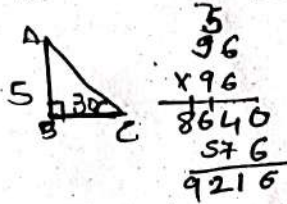 A
5
30
B
C
5
96
×96
8640
576
9216